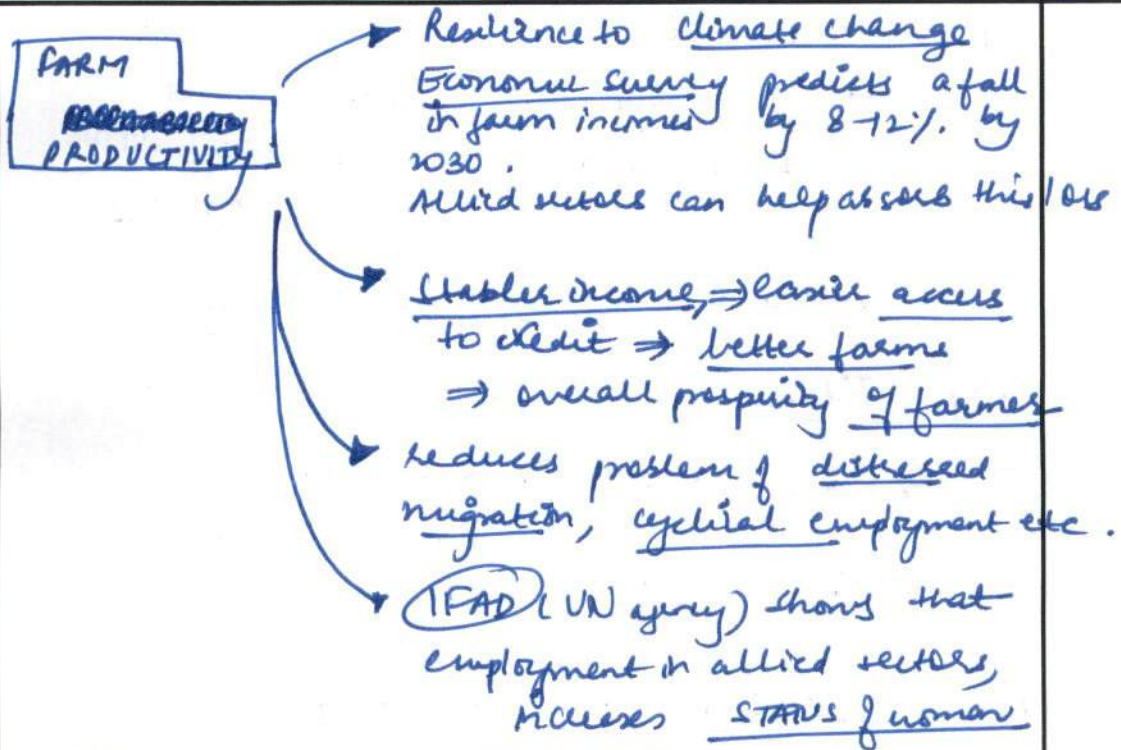 FARM
PRODUCTIVITY
Resilience to climate change
Economic Survey predicts a fall
in farm incomes by 8-12%. by
2030.
Allied sectors can help absorb this loss
Stabler income, ⇒ easier access
to credit ⇒ better farms
⇒ overall prosperity of farmer
reduces problem of distressed
migration, cyclical employment etc.
IFAD (UN agency) shows that
employment in allied sectors,
increases STATUS of woman